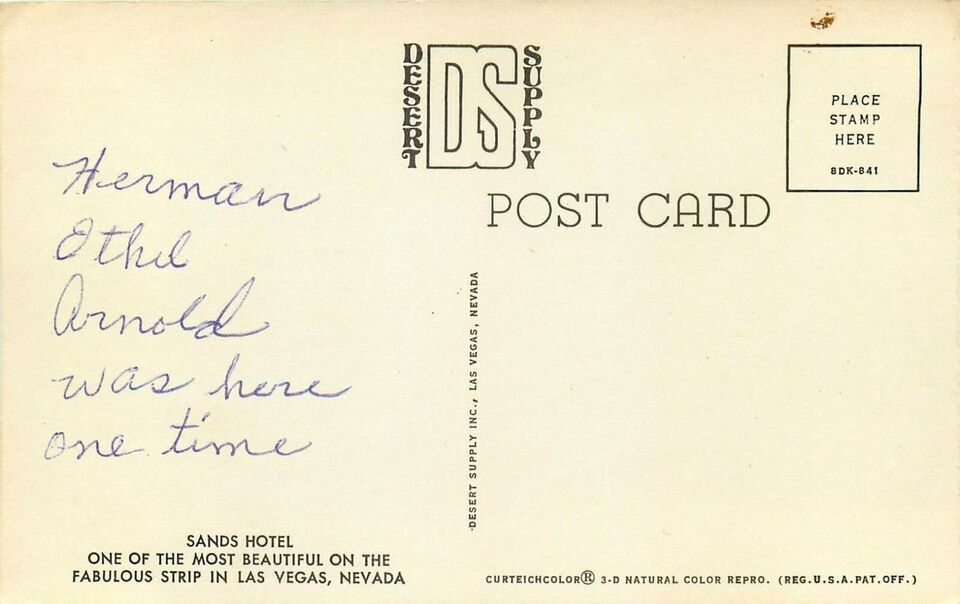 DESERT DS SUPPLY
PLACE
STAMP
HERE
8DK-841
POST CARD
Herman
Ethel
Arnold
was here
one time
DESERT SUPPLY INC., LAS VEGAS, NEVADA
SANDS HOTEL
ONE OF THE MOST BEAUTIFUL ON THE
FABULOUS STRIP IN LAS VEGAS, NEVADA
CURTEICHCOLOR® 3-D NATURAL COLOR REPRO. (REG.U.S.A.PAT.OFF.)